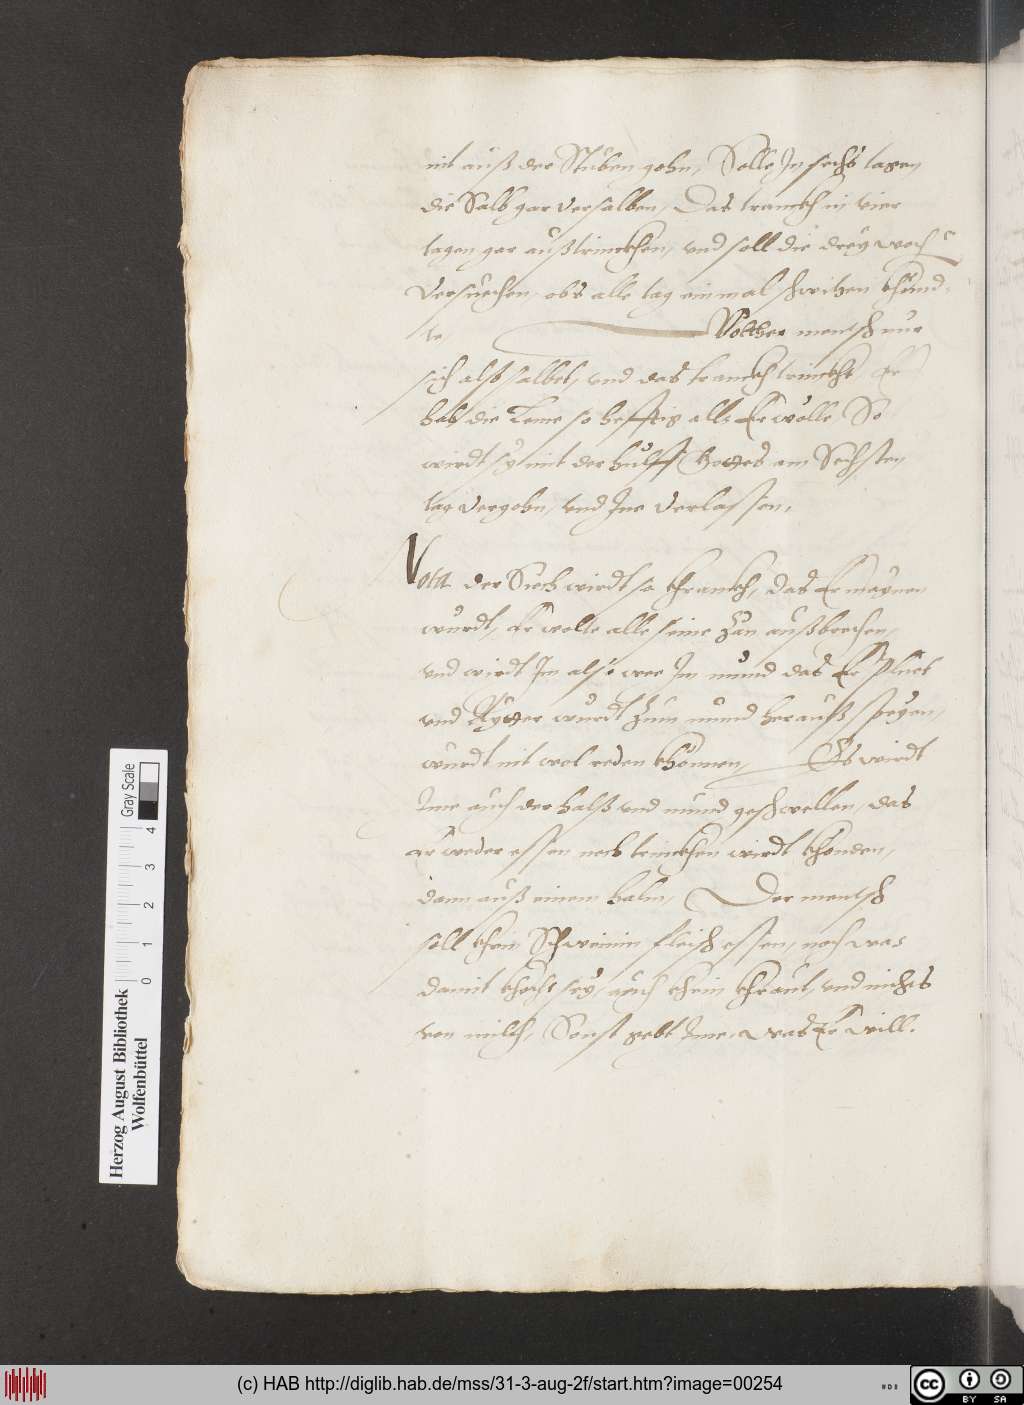 nit auß der Stuben gohn, Solle In sechs tagen
die Salb gar versalben, Das tranckh in vier
tagen gar außtrinckhen, und soll die drey woch
versuechen, obs alle tag ein mal schwitzen khünd-
te Wölcher mensch nur
sich alß salbet, und das tranckh trinckht Er
hab die Leme so hefftig alls Er wölle, So
wirdt sy mit der hülff Gottes am Sechsten
tag vergohn, und Ine verlassen.
Nota der Siech wirdt so khranckh, das Er maynen
wurdt, Er wolte alle seine Zän außbrechen,
und wirdt Im also wee Im mund das Er Pluet
und Aytter wurdt Zum mund herauß speyen,
wurdt nit wol reden khönnen, Es wirdt
Ime auch der halß und mund geschwellen, das
Er weder essen noch trinckhen wirdt khönden,
dann auß einem halm, Der mensch
soll khein Schweinin fleisch essen, noch was
damit khocht sey, auch khein khraut, und nichts
von milch, Sonst gebt Ime, was Er will.
Herzog August Bibliothek
Wolfenbüttel
Gray Scale
0 1 2 3 4
(c) HAB http://diglib.hab.de/mss/31-3-aug-2f/start.htm?image=00254
cc BY SA